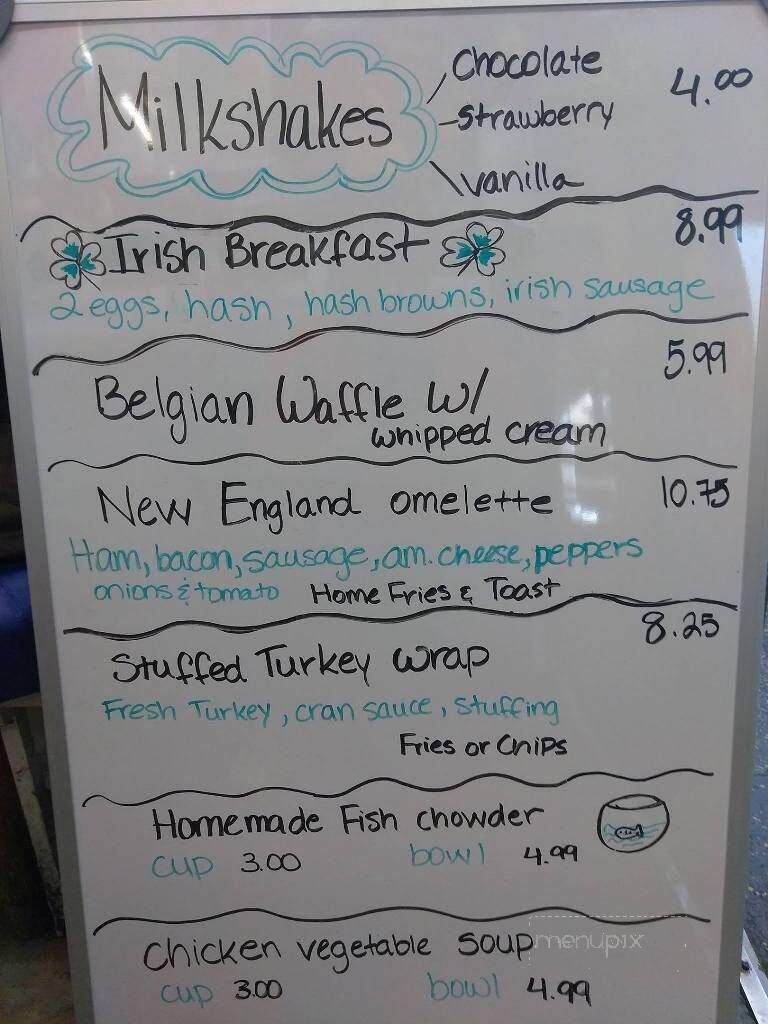 Chocolate
Milkshakes strawberry 4.00
vanilla
Irish Breakfast 8.99
2 eggs, hash, hash browns, irish sausage
Belgian Waffle w/ 5.99
whipped cream
New England omelette 10.75
Ham, bacon, sausage, am. cheese, peppers
onions & tomato Home Fries & Toast
Stuffed Turkey wrap 8.25
Fresh Turkey, cran sauce, stuffing
Fries or Chips
Homemade Fish chowder
cup 3.00 bowl 4.99
chicken vegetable soup
menupix
cup 3.00 bowl 4.99